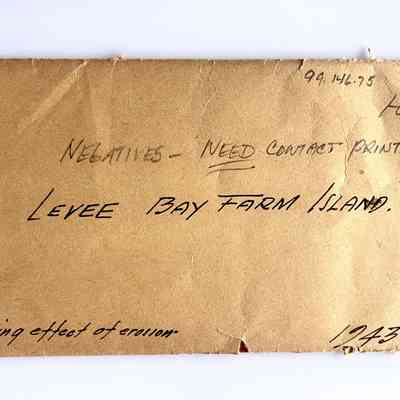 99.146.75
NEGATIVES - NEED CONTACT PRINT
LEVEE BAY FARM ISLAND.
ing effect of erosion.
1943